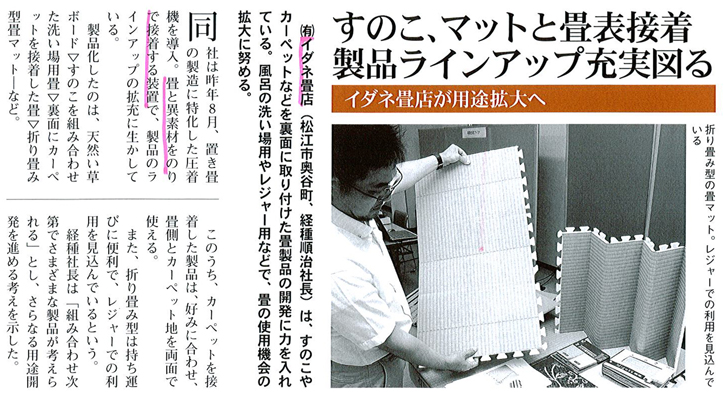 すのこ、マットと畳表接着
製品ラインアップ充実図る
イダネ畳店が用途拡大へ
折り畳み型の畳マット。レジャーでの利用を見込んで
いる
㈲イダネ畳店(松江市奥谷町、経種順治社長)は、すのこや
カーペットなどを裏面に取り付けた畳製品の開発に力を入れ
ている。風呂の洗い場用やレジャー用などで、畳の使用機会の
拡大に努める。
同社は昨年8月、置き畳
の製造に特化した圧着
機を導入。畳と異素材をのり
で接着する装置で、製品のラ
インアップの拡充に生かして
いる。
製品化したのは、天然い草
ボード▽すのこを組み合わせ
た洗い場用畳▽裏面にカーペ
ットを接着した畳▽折り畳み
型畳マット―など。
このうち、カーペットを接
着した製品は、好みに合わせ、
畳側とカーペット地を両面で
使える。
また、折り畳み型は持ち運
びに便利で、レジャーでの利
用を見込んでいるという。
経種社長は「組み合わせ次
第でさまざまな製品が考えら
れる」とし、さらなる用途開
発を進める考えを示した。